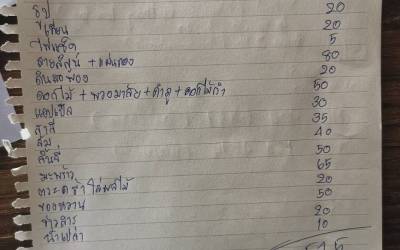 ธูป 20
เทียน 20
ไฟแช็ค 5
สายสิญจน์ + แผ่นทอง 80
ดินสอพอง 20
ดอกไม้ + พวงมาลัย + ดอกไม้กำ 50
แอปเปิ้ล 30
สาลี่ 35
ส้ม 40
50
มะพร้าว 65
ตระกร้าใส่ผลไม้ 20
ของหวาน 50
ข้าวสาร 20
น้ำเปล่า 10